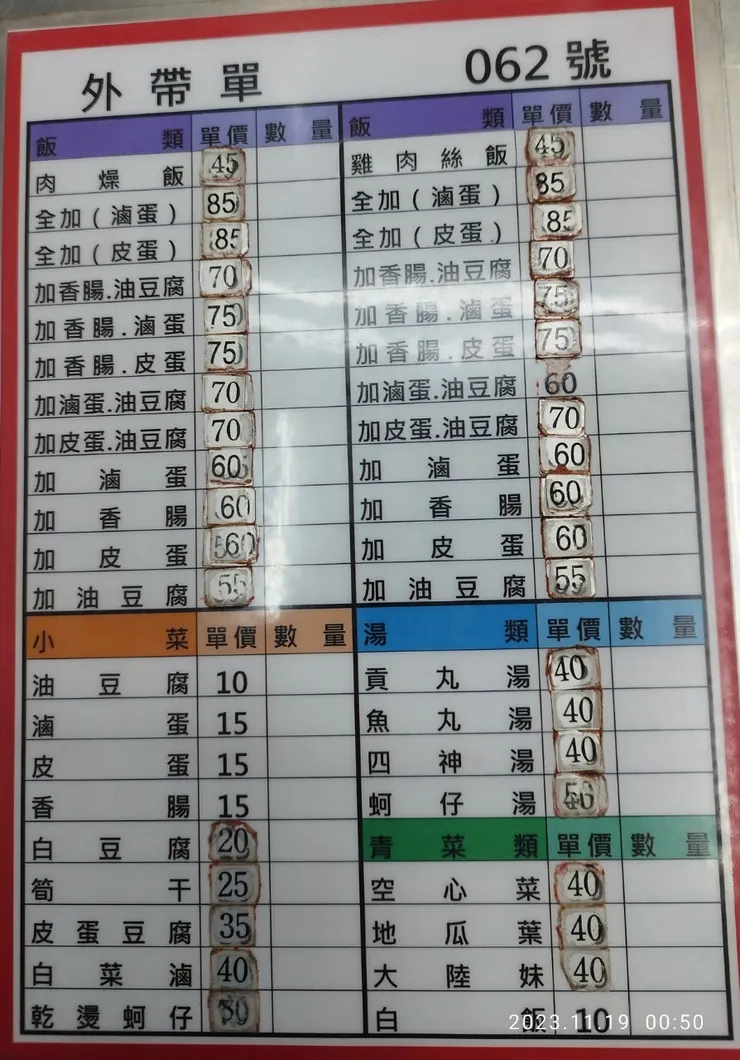 外帶單 062號
飯類 單價 數量 飯類 單價 數量
肉燥飯 45 雞肉絲飯 45
全加(滷蛋) 85 全加(滷蛋) 85
全加(皮蛋) 85 全加(皮蛋) 85
加香腸.油豆腐 70 加香腸.油豆腐 70
加香腸.滷蛋 75 加香腸.滷蛋 75
加香腸.皮蛋 75 加香腸.皮蛋 75
加滷蛋.油豆腐 70 加滷蛋.油豆腐 60
加皮蛋.油豆腐 70 加皮蛋.油豆腐 70
加滷蛋 60 加滷蛋 60
加香腸 60 加香腸 60
加皮蛋 60 加皮蛋 60
加油豆腐 55 加油豆腐 55
小菜 單價 數量 湯類 單價 數量
油豆腐 10 貢丸湯 40
滷蛋 15 魚丸湯 40
皮蛋 15 四神湯 40
香腸 15 蚵仔湯
白豆腐 20 青菜類 單價 數量
筍干 25 空心菜 40
皮蛋豆腐 35 地瓜葉 40
白菜滷 40 大陸妹 40
乾燙蚵仔 白飯 10
2023.11.19 00:50